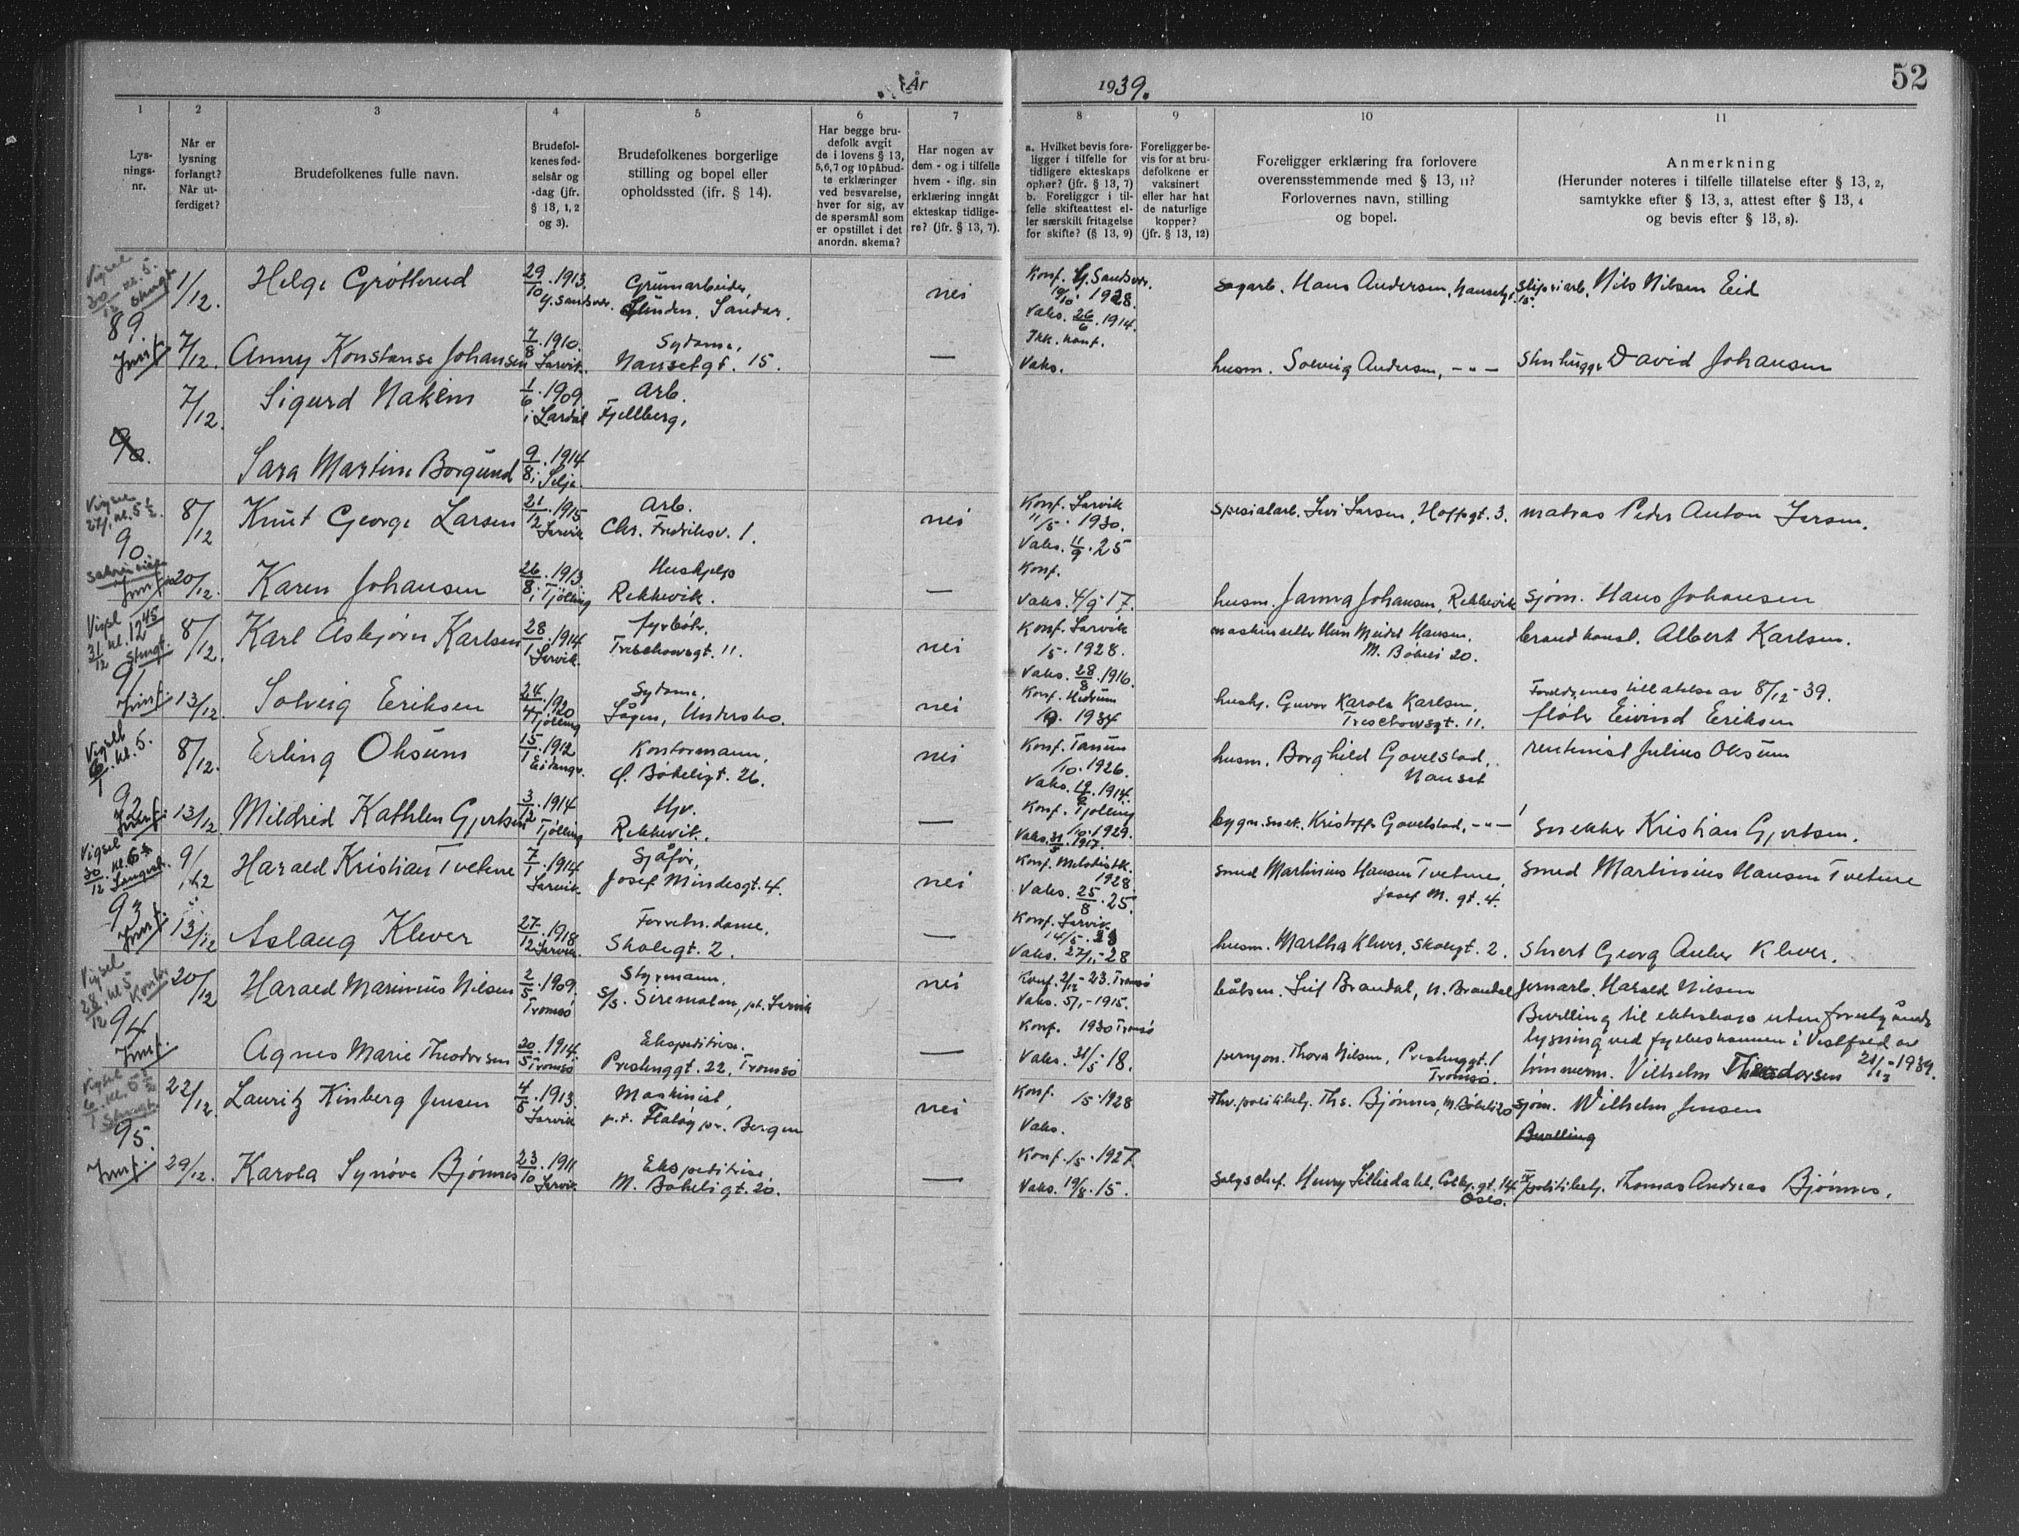 År 1939.
52
1 2 3 4 5 6 7 8 9 10 11
Lys-
nings-
nr.
Når er
lysning
forlangt?
Når ut-
ferdiget?
Brudefolkenes fulle navn.
Brudefol-
kenes fød-
selsår og
-dag (jfr.
§ 13, 1, 2
og 3).
Brudefolkenes borgerlige
stilling og bopel eller
opholdssted (ifr. § 14).
Har begge bru-
defolk avgit
de i lovens § 13,
5, 6, 7 og 10 påbud-
te erklæringer
ved besvarelse,
hver for sig, av
de spørsmål som
er opstillet i det
anordn. skema?
Har nogen av
dem - og i tilfelle
hvem - iflg. sin
erklæring inngåt
ekteskap tidlige-
re? (jfr. § 13, 7).
a. Hvilket bevis fore-
ligger i tilfelle for
tidligere ekteskaps
ophør? (jfr. § 13, 7)
b. Foreligger i til-
felle skifteattest el-
ler særskilt fritagelse
for skifte? (§ 13, 9)
Foreligger be-
vis for at bru-
defolkene er
vaksinert
eller har hat
de naturlige
kopper?
(jfr. § 13, 12)
Foreligger erklæring fra forlovere
overensstemmende med § 13, 11?
Forlovernes navn, stilling
og bopel.
Anmerkning
(Herunder noteres i tilfelle tillatelse efter § 13, 2,
samtykke efter § 13, 3, attest efter § 13, 4
og bevis efter § 13, 8).
Vigsel
30/12 kl. 5.
89.
1/12. Helge Grøtterud 29/10 1913. nei
Sandar.
Konf. Sandehr.
1928.
Vaks. 26/6 1914.
sagarb. Hans Andersen, Nansetgt. 15. Nils Nilsen Eid
7/12. Anny Konstanse Johansen 7/8 1910. Larvik. Sydame, Nansetgt. 15. —
Ikk. konf.
Vaks.
husm. Solveig Andersen, -"- David Johansen
7/12. Sigurd Nakkim 1/6 1909. i Lardal Arb. Fjellberg,
90.
Sara Martine Borgund 9/8 1914 i Selje
Vigsel
27/1 kl. 5½.
90
8/12 Knut George Larsen 21/12 1915. Larvik Arb. Chr. Fredriksv. 1. nei
Konf. Larvik
11/5 1930.
Vaks. 11/9 25
spesialarb. Larsen, Hoffsgt. 3. matros Peder Anton Larsen.
20/12. Karen Johansen 26/8 1913. i Tjølling Hushjelp Rekkevik. —
Konf.
Vaks. 4/9 17.
husm. Johansen, Rekkevik sjøm. Hans Johansen
Vigsel
31/12 kl. 12 45
91
8/12. Karl Asbjørn Karlsen 28/1 1914 Larvik. fyrbøt. Treschowsgt. 11. nei
Konf. Larvik
15. 1928.
Vaks. 28/8 1916.
Hansen, M. Bøkeli 20. Albert Karlsen.
13/12. Solveig Eriksen 24/4 1920 Tjølling Sydame, Lågen, Undersbo. nei
Konf. Hedrum
1934
hushj. Karola Karlsen, Treschowsgt. 11.
Foreldrenes tillatelse av 8/12-39.
Eivind Eriksen
Vigsel
6/1 kl. 5.
92
8/12. Erling Oksum 15/1 1912 Eidanger. Kontormann, Ø. Bøkeligt. 26. nei
Konf. Tanum
10. 1926.
Vaks. 1914.
husm. Borghild Gavelstad, Nanset rentenist Julius Oksum
13/12 Mildred Kathlen Gjertsen 3/12 1914 Tjølling Hjv. Rekkevik. —
Konf. Tjølling
10. 1929.
Vaks. 1917.
bygn.snek. Kristoffer Gavelstad, -"- snekker Kristian Gjertsen.
Vigsel
30/12
93
9/12 Harald Kristian Tvetene 7/1 1914 Larvik. Sjåfør, Josef Mindesgt. 4. nei
Konf. Metodistk.
1928.
Vaks. 25/8 25.
smed Martinius Hansen Tvetene, Josef M. gt. 4. smed Martinius Hansen Tvetene
13/12 Aslaug Klever 27/12 1918 Larvik. Forretn.dame, Skolegt. 2. —
Konf. Larvik
14/5
Vaks. 27/1-28
husm. Martha Klever, Skolegt. 2. Georg Anker Klever.
Vigsel
28/12 kl. 5
Kontor
94
20/12 Harald Marinius Nilsen 2/5 1909. Tromsø Styrmann, S/s. Siremalm, pt. Larvik nei
Konf. 2/12-23. Tromsø
Vaks. 5/1-1915.
båtsm. Leif Brandal, N. Brandal jernarb. Harald Nilsen
Bevilling til ekteskap uten foregående
lysning ved fylkesmannen i Vestfold av
21/12-1939.
Agnes Marie Theodorsen 20/5 1914. Tromsø Ekspeditrise. Prestenggt. 22, Tromsø —
Konf. 1930 Tromsø
Vaks. 31/5-18.
pensjon. Thora Nilsen, Prestenggt. 1 Tromsø. tømmerm. Vilhelm Theodorsen
Vigsel
6/1
95.
22/12. Lauritz Kinberg Jensen 4/5 1913. Larvik Maskinist, p.t. Flatøy pr. Bergen nei
Konf. 15. 1928
Vaks.
Ths. Bjønnes, M. Bøkeli 20 sjøm. Wilhelm Jensen
Bevilling
29/12. Karola Synøve Bjønnes 23/10 1911. Larvik Ekspeditrise, M. Bøkeligt. 20. —
Konf. 15. 1927
Vaks. 19/8. 15.
salgschef. Henry Lillisdahl, gt. 14 Oslo. politibetj. Thomas Andreas Bjønnes.